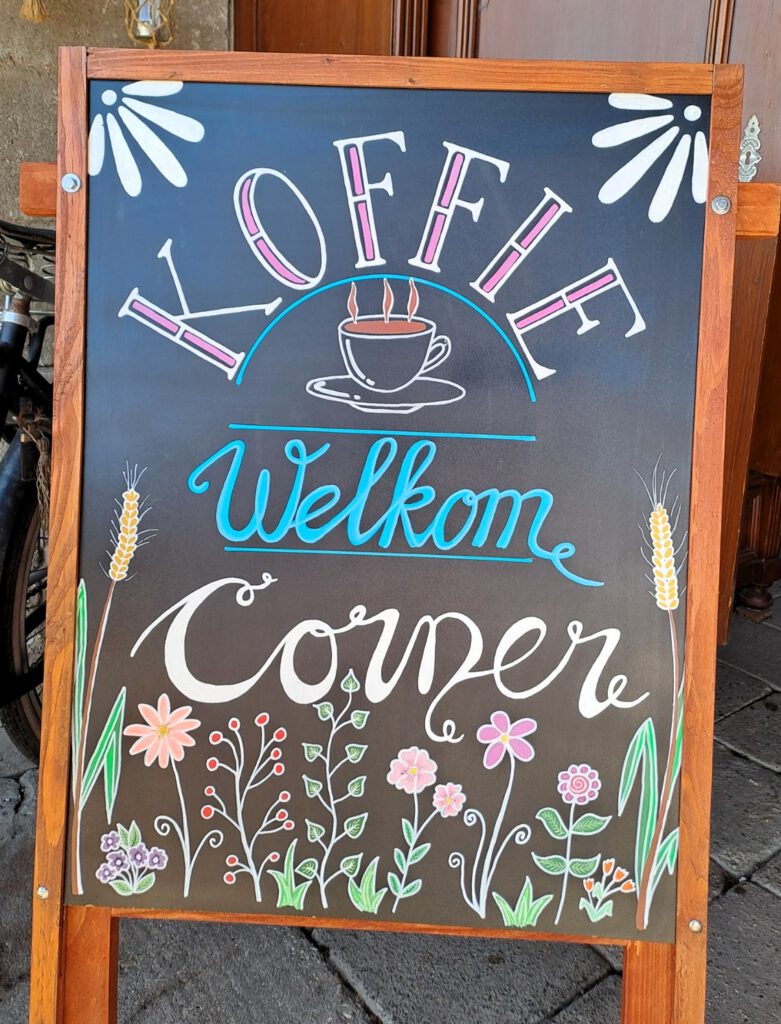 KOFFIE
Welkom
Corner